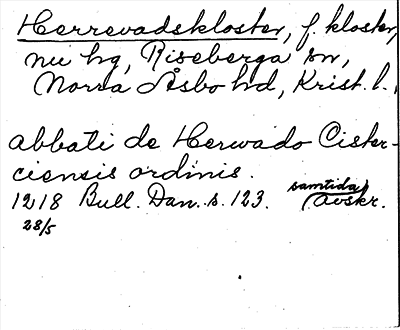 Herrevadskloster, f. kloster,
nu hg, Riseberga sn,
Norra Åsbo hd, Krist. l.
abbati de Herwado Cister-
ciensis ordinis.
1218 Bull. Dan. s. 123. (samtida avskr.
28/5